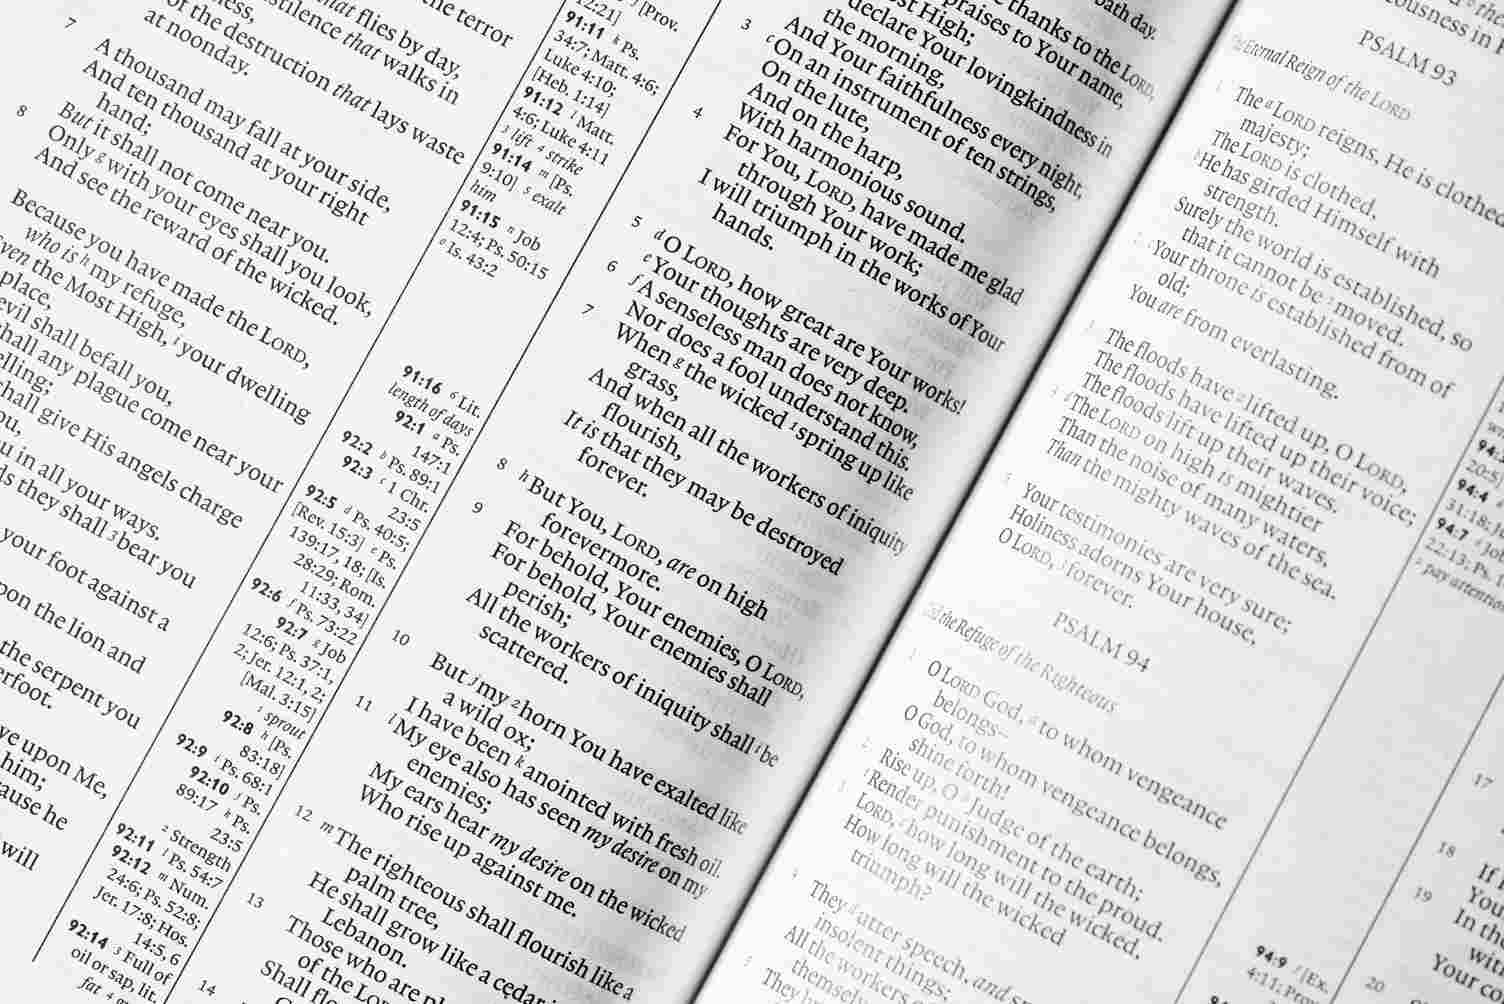 the terror
that flies by day,
stilence that walks in
of the destruction that lays waste
at noonday.
7 A thousand may fall at your side,
And ten thousand at your right
hand;
But it shall not come near you.
8 Only g with your eyes shall you look,
And see the reward of the wicked.
Because you have made the LORD,
who is h my refuge,
Even the Most High, i your dwelling
place,
evil shall befall you,
shall any plague come near your
elling;
shall give His angels charge
ou,
u in all your ways.
ds they shall 3 bear you
your foot against a
pon the lion and
the serpent you
erfoot.
ve upon Me,
him;
ause he
will
12:21]
[Prov.
91:11 k Ps.
34:7; Matt. 4:6;
Luke 4:10;
[Heb. 1:14]
91:12 l Matt.
4:6; Luke 4:11
3 lift 4 strike
91:14 m [Ps.
9:10] 5 exalt
him
91:15 n Job
12:4; Ps. 50:15
o Is. 43:2
91:16 6 Lit.
length of days
92:1 a Ps.
147:1
92:2 b Ps. 89:1
92:3 c 1 Chr.
23:5
92:5 d Ps. 40:5;
[Rev. 15:3] e Ps.
139:17, 18; [Is.
28:29; Rom.
11:33, 34]
92:6 f Ps. 73:22
92:7 g Job
12:6; Ps. 37:1,
2; Jer. 12:1, 2;
[Mal. 3:15]
1 sprout
92:8 h [Ps.
83:18]
92:9 i Ps. 68:1
92:10 j Ps.
89:17 k Ps.
23:5
2 Strength
92:11 l Ps. 54:7
92:12 m Num.
24:6; Ps. 52:8;
Jer. 17:8; Hos.
14:5, 6
92:14 3 Full of
oil or sap, lit.
fat
bath day.
thanks to the LORD,
praises to Your name,
st High;
declare Your lovingkindness in
the morning,
And Your faithfulness every night,
3 c On an instrument of ten strings,
On the lute,
And on the harp,
With harmonious sound.
4 For You, LORD, have made me glad
through Your work;
I will triumph in the works of Your
hands.
5 d O LORD, how great are Your works!
e Your thoughts are very deep.
6 f A senseless man does not know,
Nor does a fool understand this.
7 When g the wicked 1 spring up like
grass,
And when all the workers of iniquity
flourish,
It is that they may be destroyed
forever.
8 h But You, LORD, are on high
forevermore.
9 For behold, Your enemies, O LORD,
For behold, Your enemies shall
perish;
All the workers of iniquity shall i be
scattered.
10 But j my 2 horn You have exalted like
a wild ox;
I have been k anointed with fresh oil.
11 l My eye also has seen my desire on my
enemies;
My ears hear my desire on the wicked
Who rise up against me.
12 m The righteous shall flourish like a
palm tree,
He shall grow like a cedar
Lebanon.
13 Those who are pl
of the LO
Shall flo
14
ousness in
PSALM 93
The Eternal Reign of the LORD
1 The a LORD reigns, He is clothed
majesty;
The LORD is clothed,
b He has girded Himself with
strength.
Surely the world is established, so
that it cannot be 1 moved.
2 c Your throne is established from of
old;
You are from everlasting.
3 The floods have 2 lifted up, O LORD,
The floods have lifted up their voice;
The floods lift up their waves.
4 d The LORD on high is mightier
Than the noise of many waters,
Than the mighty waves of the sea.
5 Your testimonies are very sure;
Holiness adorns Your house,
O LORD, 3 forever.
PSALM 94
God the Refuge of the Righteous
1 O LORD God, a to whom vengeance
belongs–
O God, to whom vengeance belongs,
shine forth!
2 Rise up, O b Judge of the earth;
1 Render punishment to the proud.
3 LORD, c how long will the wicked,
How long will the wicked
triumph?
4 They d utter speech, and
insolent things;
All the workers
themselv
5 They
20:5]
94:4
31:18;
94:7 d Job
22:13; Ps.
2 pay attention
94:9 f [Ex.
4:11; Prov
17
18 If
You
19 In th
wit
Your co
20